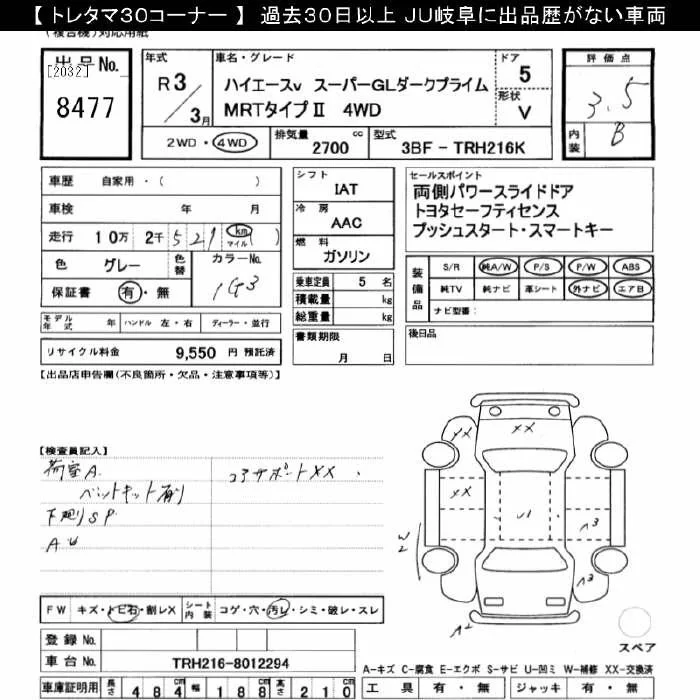 【 トレタマ30コーナー 】 過去30日以上 JU岐阜に出品歴がない車両
(複合機)対応用紙
出品No. [2032] 8477
年式 R3/3月
車名・グレード
ハイエースv スーパーGLダークプライム
MRTタイプⅡ 4WD
ドア 5
形状 V
評価点 3.5
内装 B
2WD・4WD 排気量 2700 cc 型式 3BF - TRH216K
車歴 自家用・( )
車検 年 月
走行 10万 2千 521 km マイル ( )
色 グレー 色替 カラーNo. 1G3
保証書 有・無
シフト IAT
冷房 AAC
燃料 ガソリン
乗車定員 5 名
積載量 kg
総重量 kg
セールスポイント
両側パワースライドドア
トヨタセーフティセンス
プッシュスタート・スマートキー
装備品 S/R 純A/W P/S P/W ABS
純TV 純ナビ 革シート 外ナビ エアB
ナビ型番:
モデル年式 年 ハンドル 左・右 ディーラー・並行
リサイクル料金 9,550 円 預託済
書類期限 月 日
後日品
【出品店申告欄(不良箇所・欠品・注意事項等)】
【検査員記入】
荷室A コアサポートXX
ベットキット有り
下廻りSP
AU
XX XX
XX
U1
A3
W2
A3
A2
FW キズ・トビ石・割レX シート内装 コゲ・穴・汚レ・シミ・破レ・スレ
スペア
登録No.
車台No. TRH216-8012294
A-キズ C-腐食 E-エクボ S-サビ U-凹ミ W-補修 XX-交換済
車庫証明用 長さ 484 幅 188 高さ 210
工具 有・無 ジャッキ 有・無